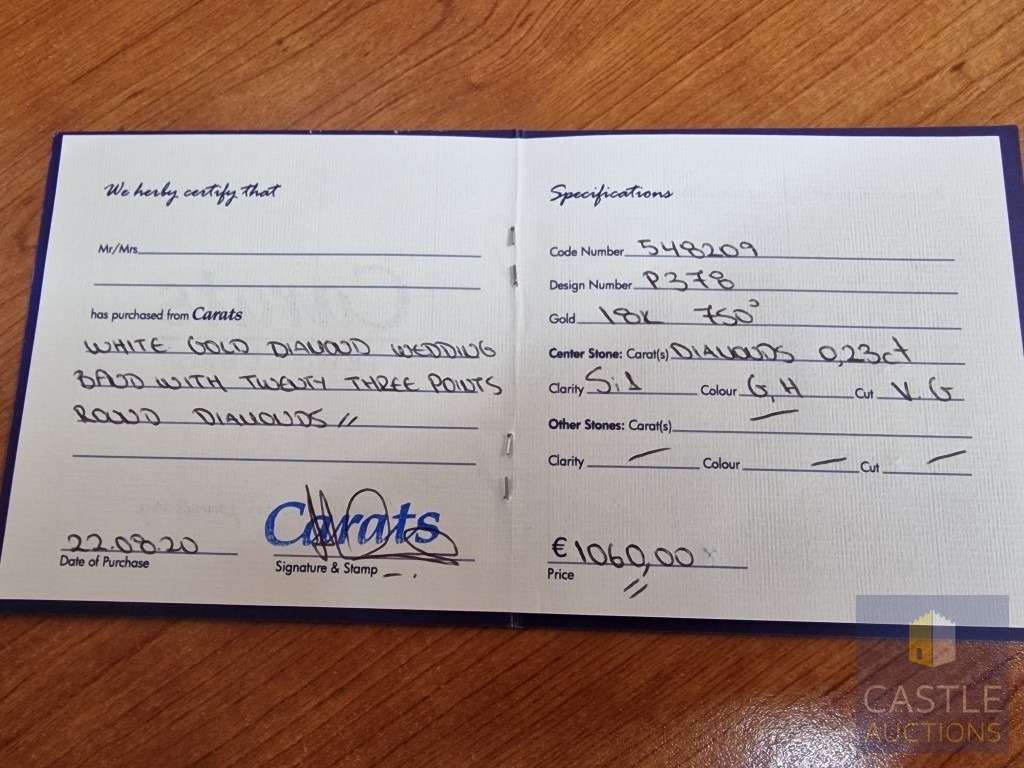 We herby certify that
Mr/Mrs
has purchased from Carats
WHITE GOLD DIAMOND WEDDING
BAND WITH TWENTY THREE POINTS
ROUND DIAMONDS //
22.08.20
Date of Purchase
Carats
Signature & Stamp
Specifications
Code Number 548209
Design Number P378
Gold 18K 750°
Center Stone: Carat(s) DIAMONDS 0,23ct
Clarity Si1 Colour G,H Cut V.G
Other Stones: Carat(s)
Clarity — Colour — Cut —
€1060,00
Price
CASTLE
AUCTIONS